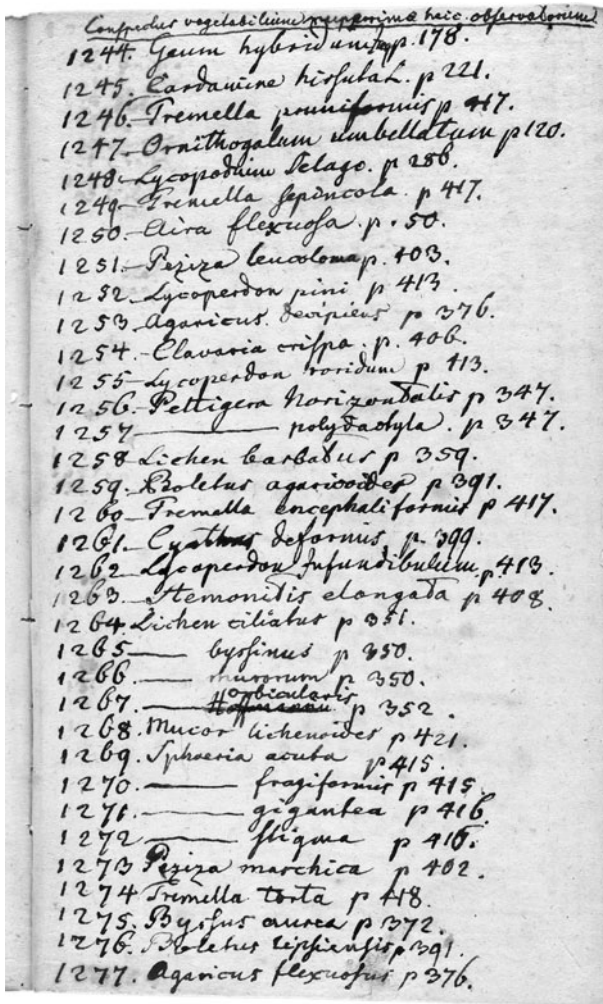 Conspectus vegetabilium nuperrime heic observatorum
1244. Geum hybridum p. 178.
1245. Cardamine hirsuta L. p 221.
1246. Tremella pruniformis p 417.
1247. Ornithogalum umbellatum p 120.
1248. Lycopodium Selago. p 286.
1249. Tremella sepincola. p 417.
1250. Aira flexuosa. p. 50.
1251. Peziza leucoloma p. 403.
1252. Lycoperdon pini p 413
1253. Agaricus decipiens p 376.
1254. Clavaria crispa. p. 406.
1255. Lycoperdon roridum p 413.
1256. Peltigera horizontalis p 347.
1257 ——— polydactyla. p 347.
1258 Lichen barbatus p 359.
1259. Boletus agaricoides p 391.
1260 Tremella encephaliformis p 417.
1261. Cyathus deformis p. 399.
1262 Lycoperdon Infundibulum p. 413.
1263. Stemonitis elongata p 408.
1264. Lichen ciliatus p 351.
1265 —— byssinus p 350.
1266 —— murorum p 350.
1267. —— orbicularis p 352.
1268. Mucor lichenoides p 421.
1269. Sphaeria acuta p 415.
1270. ——— fragiformis p 415.
1271. ——— gigantea p 416.
1272 ——— stigma p 416.
1273 Peziza marchica p 402.
1274 Tremella torta p 418.
1275. Byssus aurea p 372.
1276. Boletus lipsiensis p 391.
1277. Agaricus flexuosus p 376.